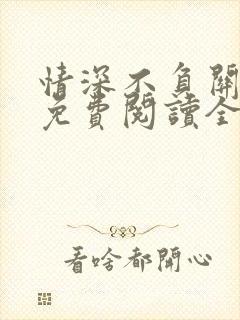 情深不負開
免費閱讀全
看啥都開心